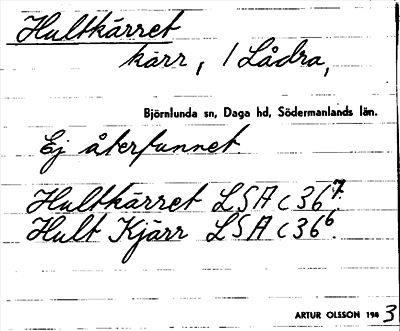 Hultkärret
kärr, / Lådra,
Björnlunda sn, Daga hd, Södermanlands län.
Ej återfunnet.
Hultkärret LSA C 36⁷.
Hult Kjärr LSA C 36⁶.
ARTUR OLSSON 193